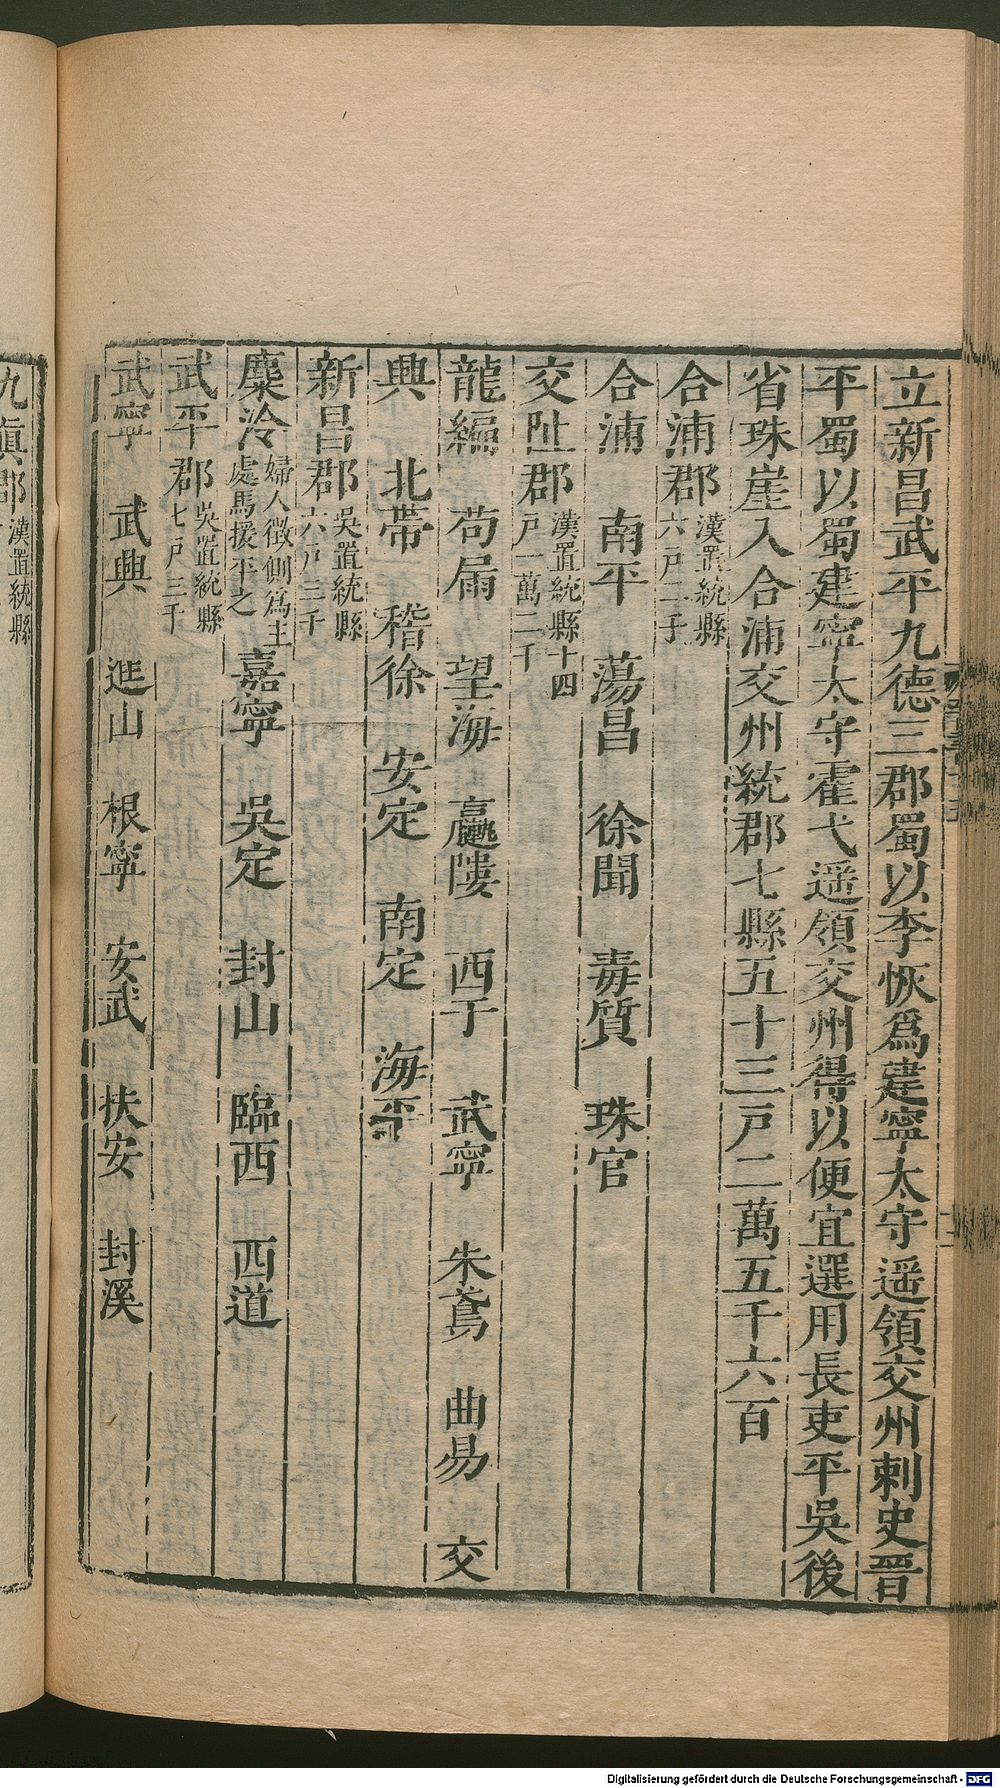 立新昌武平九德三郡蜀以李恢爲建寧太守遥領交州刺史晉
平蜀以蜀建寧太守霍弋遥領交州得以便宜選用長吏平吳後
省珠崖入合浦交州統郡七縣五十三戸二萬五千六百
合浦郡漢置統縣六戸二千
合浦 南平 蕩昌 徐聞 毒質 珠官
交阯郡漢置統縣十四戸一萬二千
龍編 苟扇 望海 𨏩𨻻 西于 武寧 朱鳶 曲昜 交
興 北帶 稽徐 安定 南定 海平
新昌郡吳置統縣六戸三千
麋泠婦人徵側爲主處馬援平之 嘉寧 吳定 封山 臨西 西道
武平郡吳置統縣七戸三千
武寧 武興 進山 根寧 安武 扶安 封溪
九眞郡漢置統縣
Digitalisierung gefördert durch die Deutsche Forschungsgemeinschaft - DFG